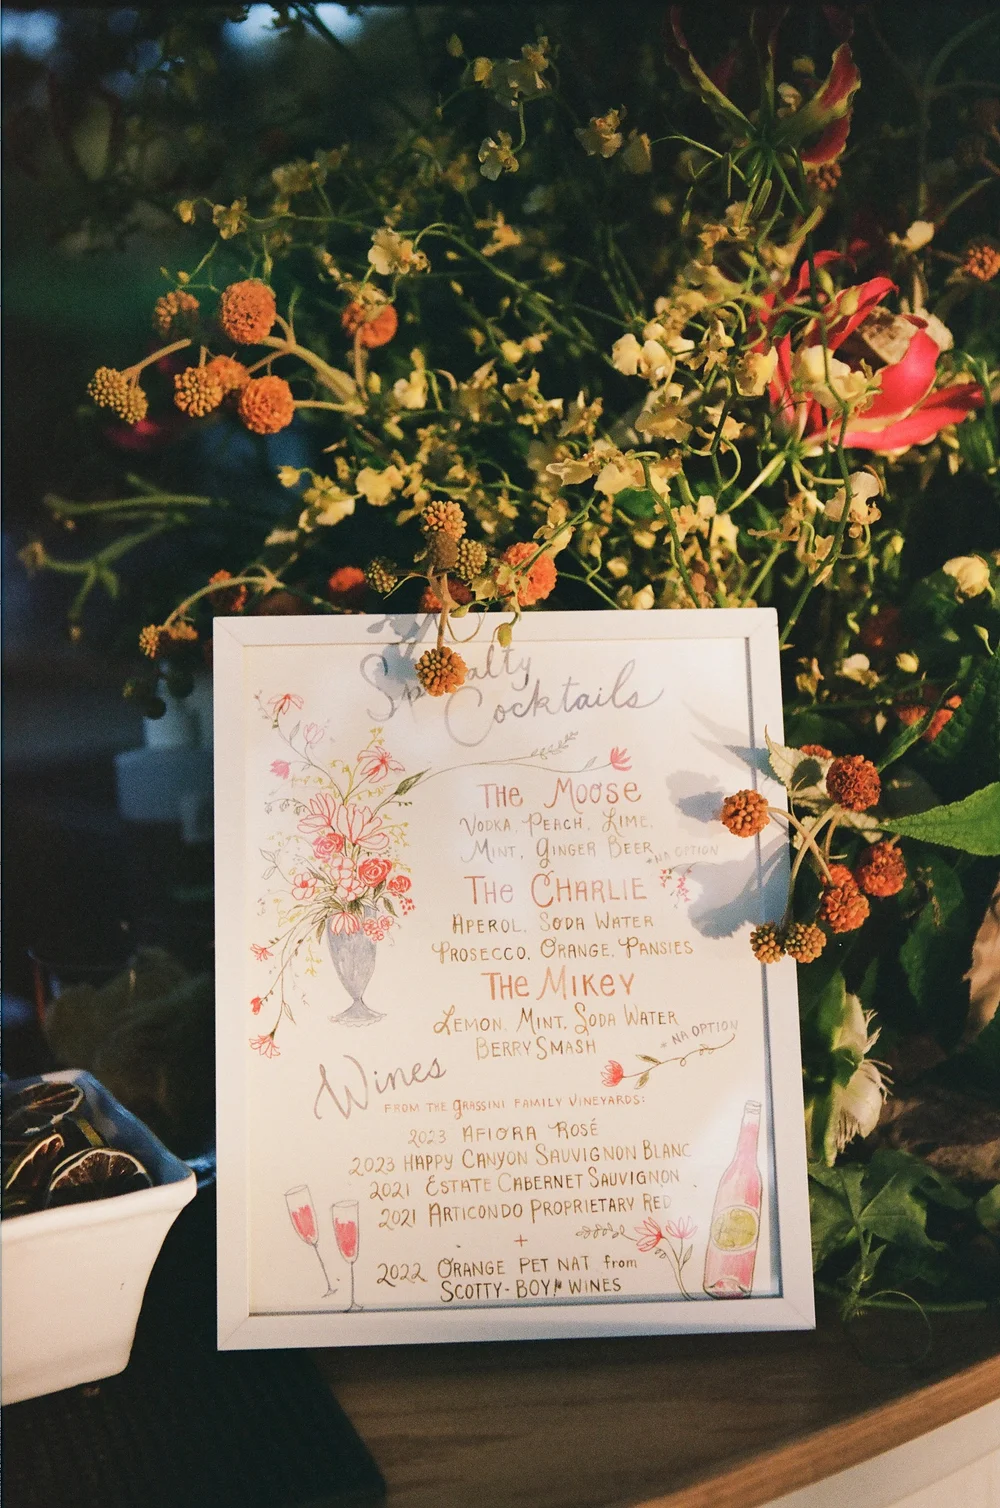 Specialty
Cocktails
THE MOOSE
VODKA, PEACH, LIME,
MINT, GINGER BEER *NA OPTION
THE CHARLIE
APEROL, SODA WATER
PROSECCO, ORANGE, PANSIES
THE MIKEY
LEMON, MINT, SODA WATER
BERRY SMASH * NA OPTION
Wines
FROM THE GRASSINI FAMILY VINEYARDS:
2023 AFIORA ROSÉ
2023 HAPPY CANYON SAUVIGNON BLANC
2021 ESTATE CABERNET SAUVIGNON
2021 ARTICONDO PROPRIETARY RED
+
2022 ORANGE PET NAT from
SCOTTY-BOY! WINES